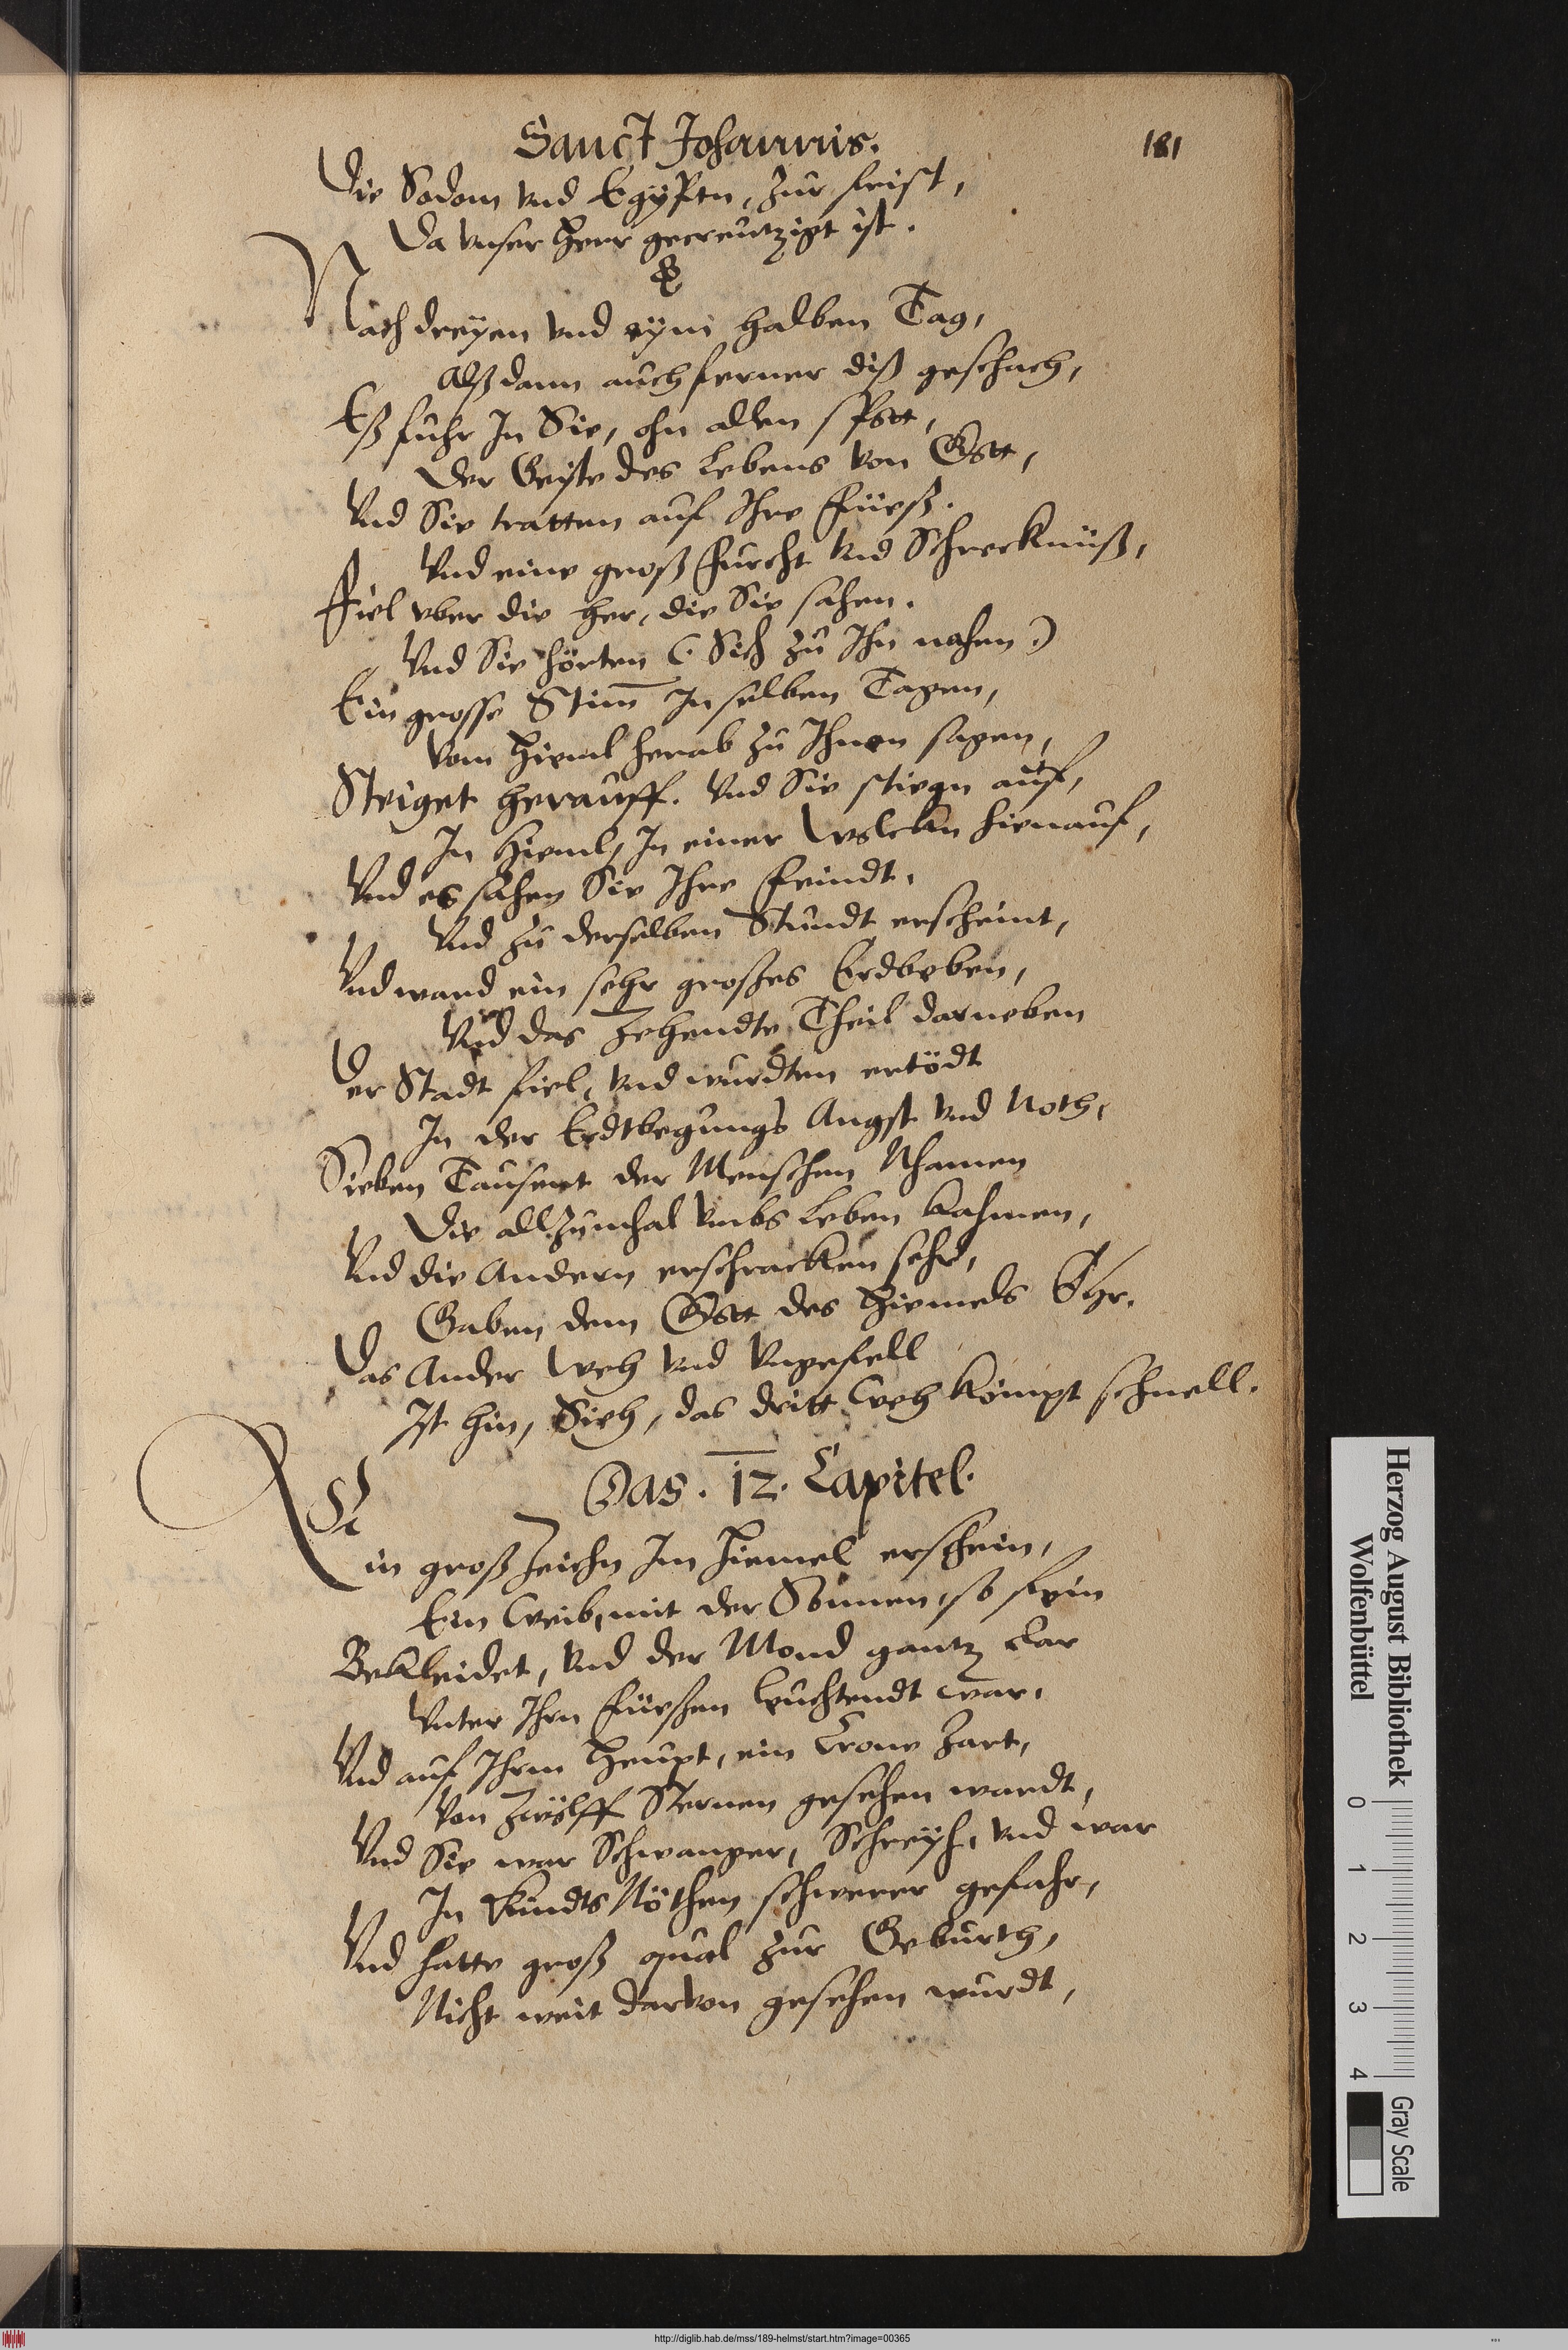 Sanct Johannis.
181
Die Sodom vnd Egypten, zur frist,
Da vnser Herr gecreutzigt ist.
Nach dreyen vnd eym halben Tag,
Alß dann auch ferner diß geschach,
Eß fuhr In Sie, ohn allen spott,
Der Geiste des Lebens von Gott,
Vnd Sie tratten auf Ihre Füeß.
Vnd eine groß Furcht vnd Schrecknüß,
Fiel vber die her, die Sie sahen.
Vnd Sie hörten (Sich zu Ihn nahen)
Ein grosse Stim̄ In selben Tagen,
Vom Hieml herab zu Ihnen sagen,
Steiget herauff. Vnd Sie stiegn auf,
In Hieml, In einer Wolckn hienauf,
Vnd es sahen Sie Ihre Feindt.
Vnd zu derselben Stundt erscheint,
Vnd ward ein sehr großes Erdbeben,
Vnd das Zehendte Theil darneben
Der Stadt fiel, vnd wurdten ertödt
In der Erdtbegungs Angst vnd Noth,
Sieben Tausent der Menschen Nhamen
Die allzumhal vmbs Leben kahmen,
Vnd die Andern erschracken sehr,
Gaben dem Gott des Hiemels Ehr.
Das Ander Weh vnd Vngefell
Ist hin, Sieh, das dritt Weh kömpt schnell.
Das. 12. Capitel.
Ein groß Zeichn Im Hiemel erschein,
Ein Weib, mit der Sonnen, so fein
Bekleidet, vnd der Mond gantz klar
Vnter Ihrn Füeßen leuchtendt war,
Vnd auf Ihrm Heupt, ein Crone Zart,
Von Zwölff Sternen gesehen wardt,
Vnd Sie war Schwanger, Schreyh, vnd war
In Kindts Nöthen schwerer gefahr,
Vnd hatte groß qual zur Geburth,
Nicht weit darvon gesehen wurdt,
Herzog August Bibliothek
Wolfenbüttel
0 1 2 3 4
Gray Scale
http://diglib.hab.de/mss/189-helmst/start.htm?image=00365